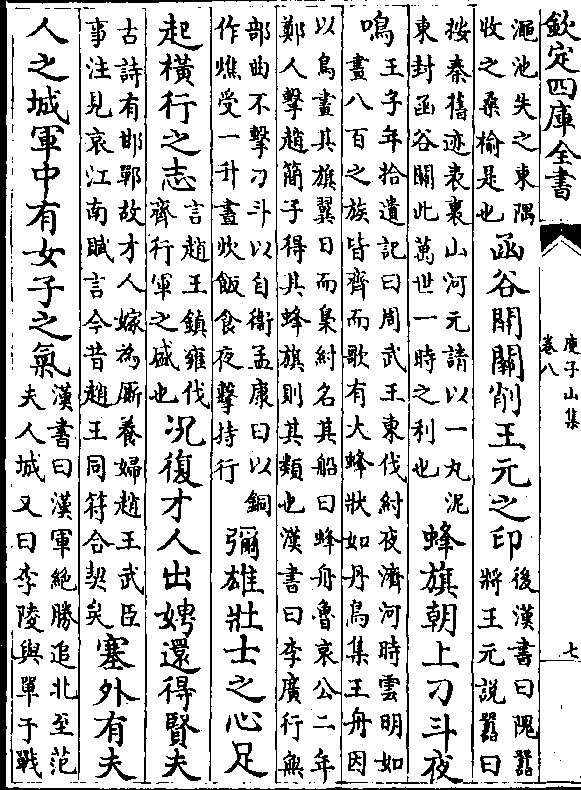 欽定四庫全書
庾子山集
卷八
七
澠池失之東隅
收之桑榆是也
函谷開關削王元之印
後漢書曰隗囂
將王元說囂曰
按秦舊迹表裏山河元請以一丸泥
東封函谷關此萬世一時之利也
蜂旗朝上刁斗夜
鳴
王子年拾遺記曰周武王東伐紂夜濟河時雲明如
晝八百之族皆齊而歌有大蜂狀如丹鳥集王舟因
以鳥畫其旗翼日而梟紂名其船曰蜂舟魯哀公二年
鄭人擊趙簡子得其蜂旗則其類也漢書曰李廣行無
部曲不擊刁斗以自衛孟康曰以銅
作燋受一升晝炊飯食夜擊持行
彌雄壯士之心足
起橫行之志
言趙王鎮雍伐
齊行軍之盛也
况復才人出娉還得賢夫
古詩有邯鄲故才人嫁為厮養婦趙王武臣
事注見哀江南賦言今昔趙王同符合契矣
塞外有夫
人之城軍中有女子之氣
漢書曰漢軍絶勝追北至范
夫人城又曰李陵與單于戰